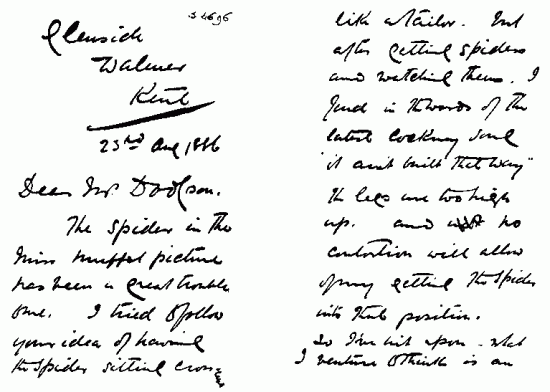 Glenside
Walmer
Kent
23rd Aug 1886
Dear Mr Dodgson.
The spider in the
Miss Muffet picture
has been a great trouble
to me. I tried to follow
your idea of having
the spider sitting cross
like a tailor. But
after getting spiders
and watching them. I
find in the words of the
latest Cockney song
"it aint built that way"
The legs are too high
up. and no
contortion will allow
of my getting the spider
into that position.
So I've hit upon - what
I venture to think is an